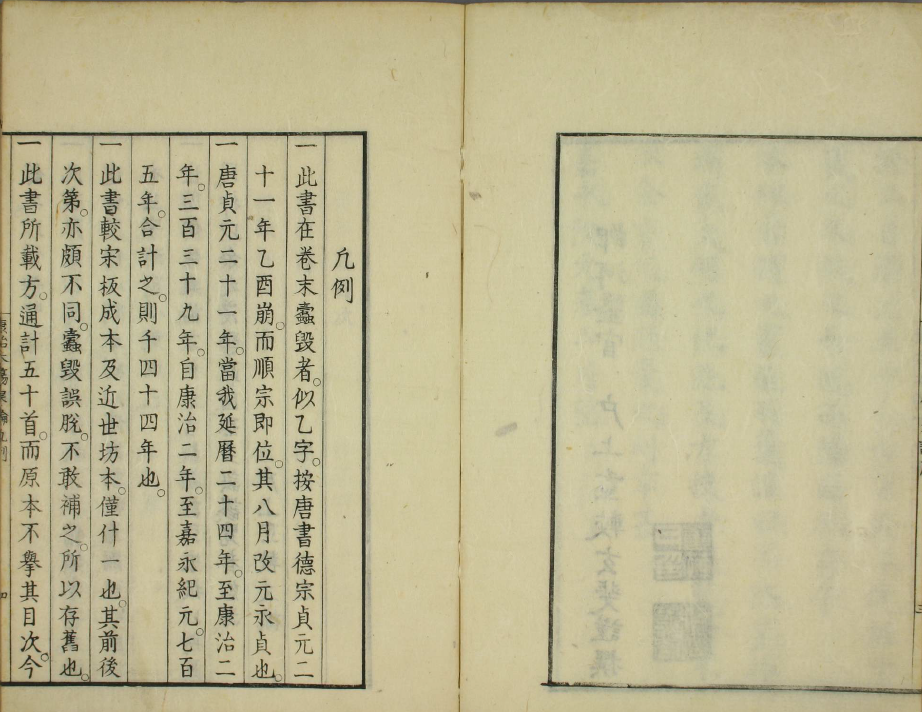 凡例
一此書在卷末蠹毀者。似乙字。按唐書德宗貞元二
十一年乙酉崩。而順宗即位。其八月改元永貞也。
一唐貞元二十一年。當我延曆二十四年。至康治二
年。三百三十九年。自康治二年。至嘉永紀元。七百
五年。合計之。則千四十四年也。
一此書較宋板成本及近世坊本。僅什一也。其前後
次第。亦頗不同。蠹毀誤脫。不敢補之。所以存舊也。
一此書所載方。通計五十首。而原本不擧其目次。今